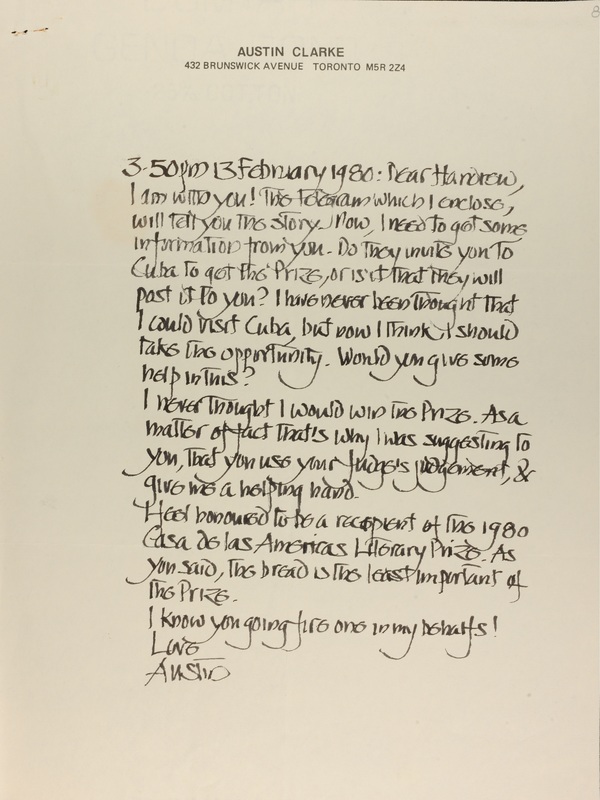 8
AUSTIN CLARKE
432 BRUNSWICK AVENUE TORONTO M5R 2Z4
3.50pm 13 February 1980: Dear Handrew,
I am with you! The Telegram which I enclose,
will tell you the story. Now, I need to get some
information from you. Do they invite you to
Cuba to get the Prize, or is it that they will
post it to you? I have never been thought that
I could visit Cuba, but now I think I should
take the opportunity. Would you give some
help in this?
I never thought I would win the Prize. As a
matter of fact that's why I was suggesting to
you, that you use your judge's judgement, &
give me a helping hand.
I feel honoured to be a recepient of the 1980
Casa de las Americas Literary Prize. As
you said, the bread is the least important of
the Prize.
I know you going fire one in my behalfs!
Love
Austin